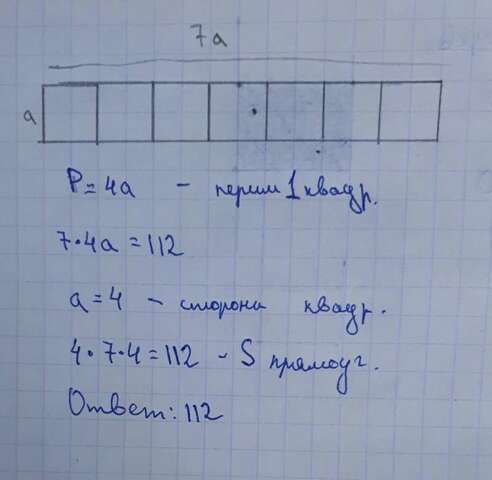 7a
a
P = 4a - перим 1 квадр.
7·4a = 112
a = 4 - сторона квадр.
4·7·4 = 112 - S прямоуг.
Ответ: 112